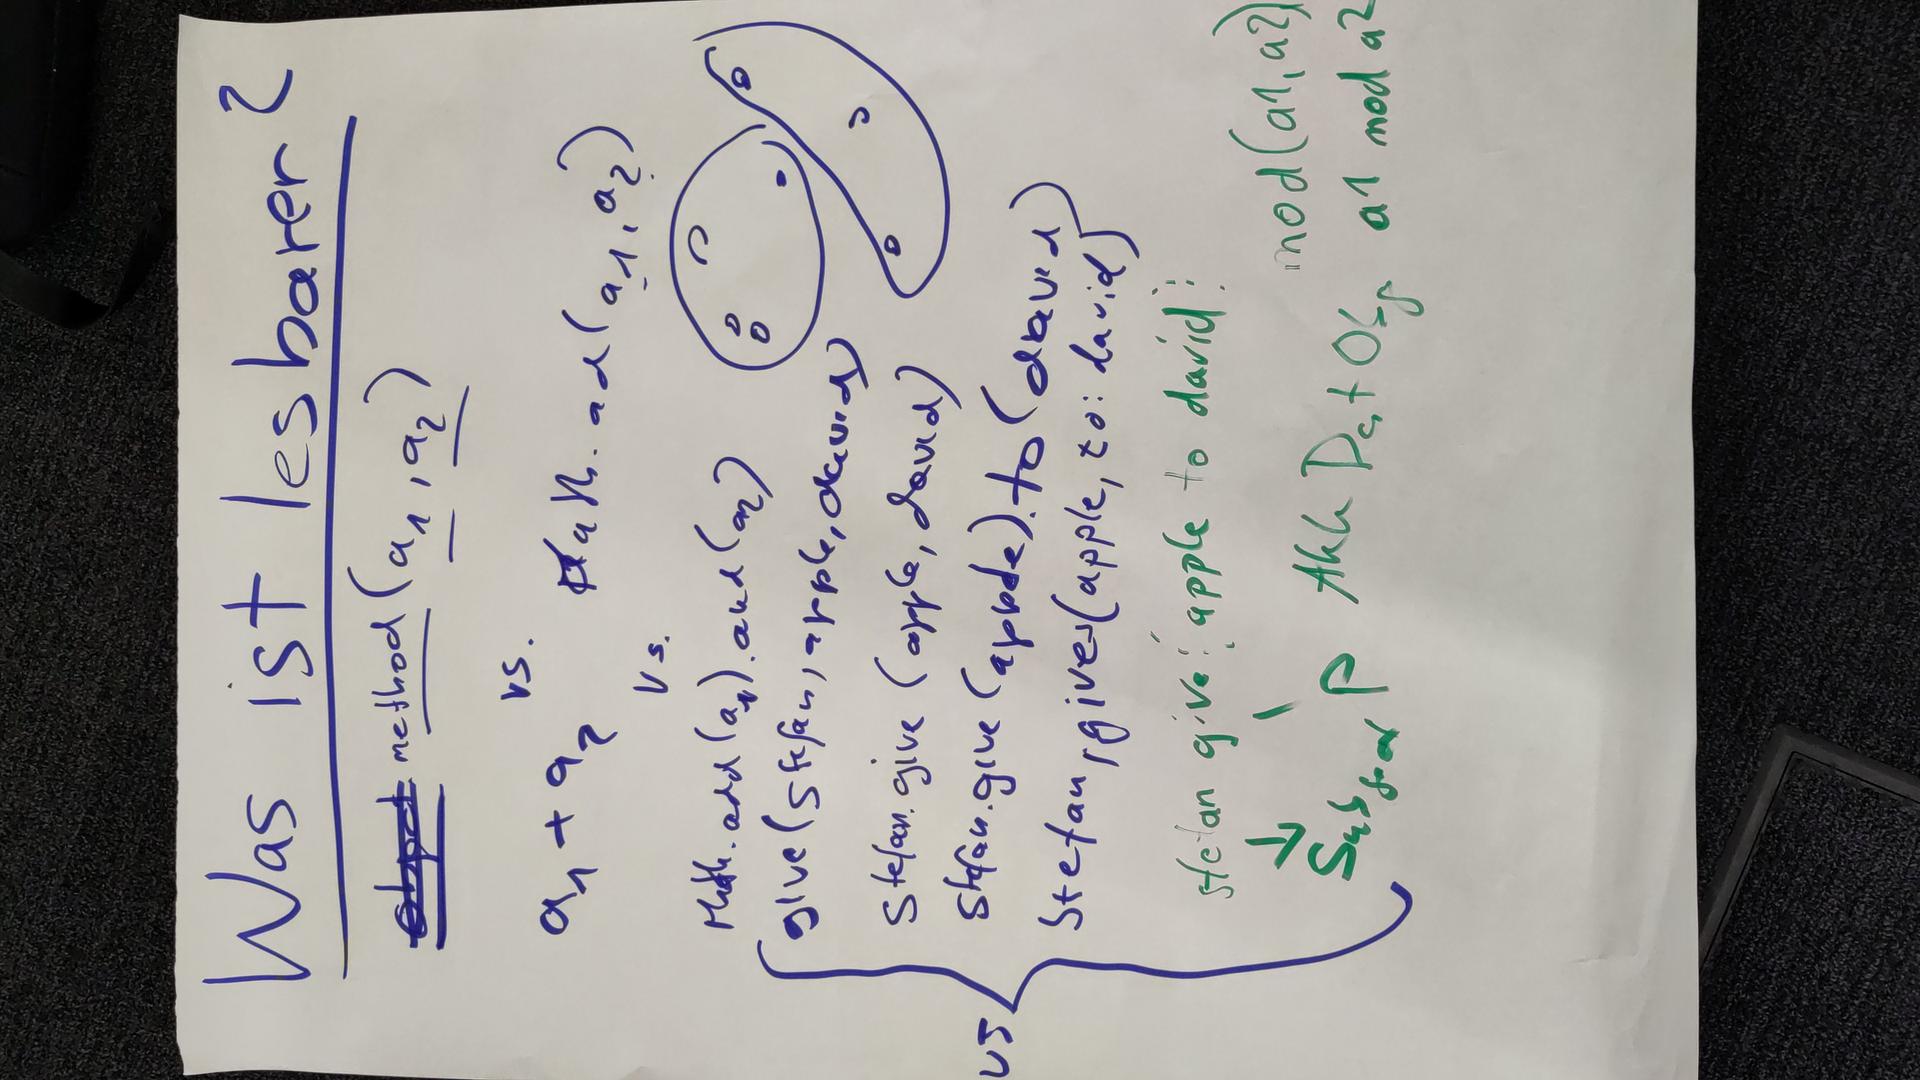 Was ist lesbarer?
method(a1, a2)
a1 + a2 vs. Math.add(a1, a2)
vs.
Math.add(a1).and(a2)
give(Stefan, apple, david)
Stefan.give(apple, david)
Stefan.give(apple).to(david)
Stefan,give(apple, to: david)
vs
stefan give: apple to david:
mod(a1, a2)
Subj P Akk Dat Obj
a1 mod a2